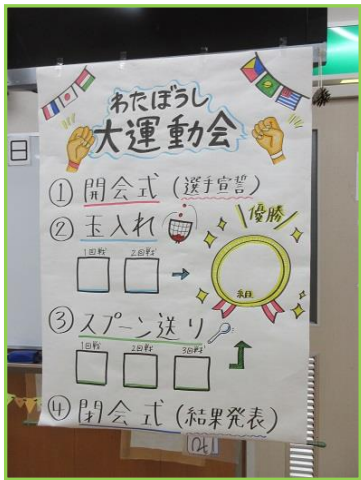 わたぼうし
大運動会
日
① 開会式 (選手宣誓)
② 玉入れ
優勝
1回戦 2回戦
組
③ スプーン送り
1回戦 2回戦 3回戦
④ 閉会式 (結果発表)